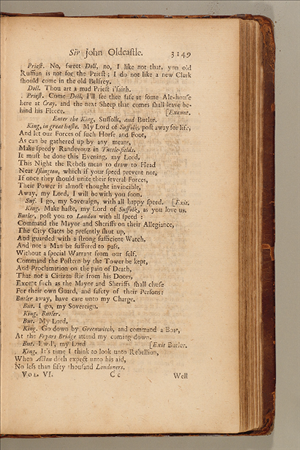 Sir John Oldcastle. 3149
Priest. No, sweet Doll, no, I like not that, you old
Ruffian is not for the Priest; I do not like a new Clark
should come in the old Belfrey.
Doll. Thou art a mad Priest i'faith.
Priest. Come Doll, I'll see thee safe at some Ale-house
here at Cray, and the next Sheep that comes shall leave be-
hind his Fleece. [Exeunt.
Enter the King, Suffolk, and Butler.
King, in great haste. My Lord of Suffolk, post away for life,
And let our Forces of such Horse and Foot,
As can be gathered up by any means,
Make speedy Randevouz in Tuttle-fields.
It must be done this Evening, my Lord,
This Night the Rebels mean to draw to Head
Near Islington, which if your speed prevent not,
If once they should unite their several Forces,
Their Power is almost thought invincible,
Away, my Lord, I will be with you soon.
Suf. I go, my Sovereign, with all happy speed. [Exit.
King. Make haste, my Lord of Suffolk, as you love us.
Butler, post you to London with all speed:
Command the Mayor and Sheriffs on their Allegiance,
The City Gates be presently shut up,
And guarded with a strong sufficient Watch,
And not a Man be suffered to pass,
Without a special Warrant from our self.
Command the Postern by the Tower be kept,
And Proclamation on the pain of Death,
That not a Citizen stir from his Doors,
Except such as the Mayor and Sheriffs shall chuse
For their own Guard, and safety of their Persons:
Butler away, have care unto my Charge.
But. I go, my Sovereign.
King. Butler.
But. My Lord.
King. Go down by Greenwich, and command a Boat,
At the Fryars Bridge attend my coming down.
But. I will, my Lord [Exit Butler.
King. It's time I think to look unto Rebellion,
When Acton doth expect unto his aid,
No less than fifty thousand Londoners.
VOL. VI. C c Well